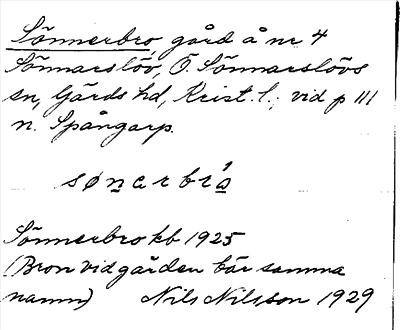 Sönnerbro, gård å nr 4
Sönnarslöv, Ö. Sönnarslövs
sn, Gärds hd, Krist. l.; vid p III
n. Spångarp.
sønarbrå
Sönnerbro kb 1925
(Bron vid gården bär samma
namn) Nils Nilsson 1929